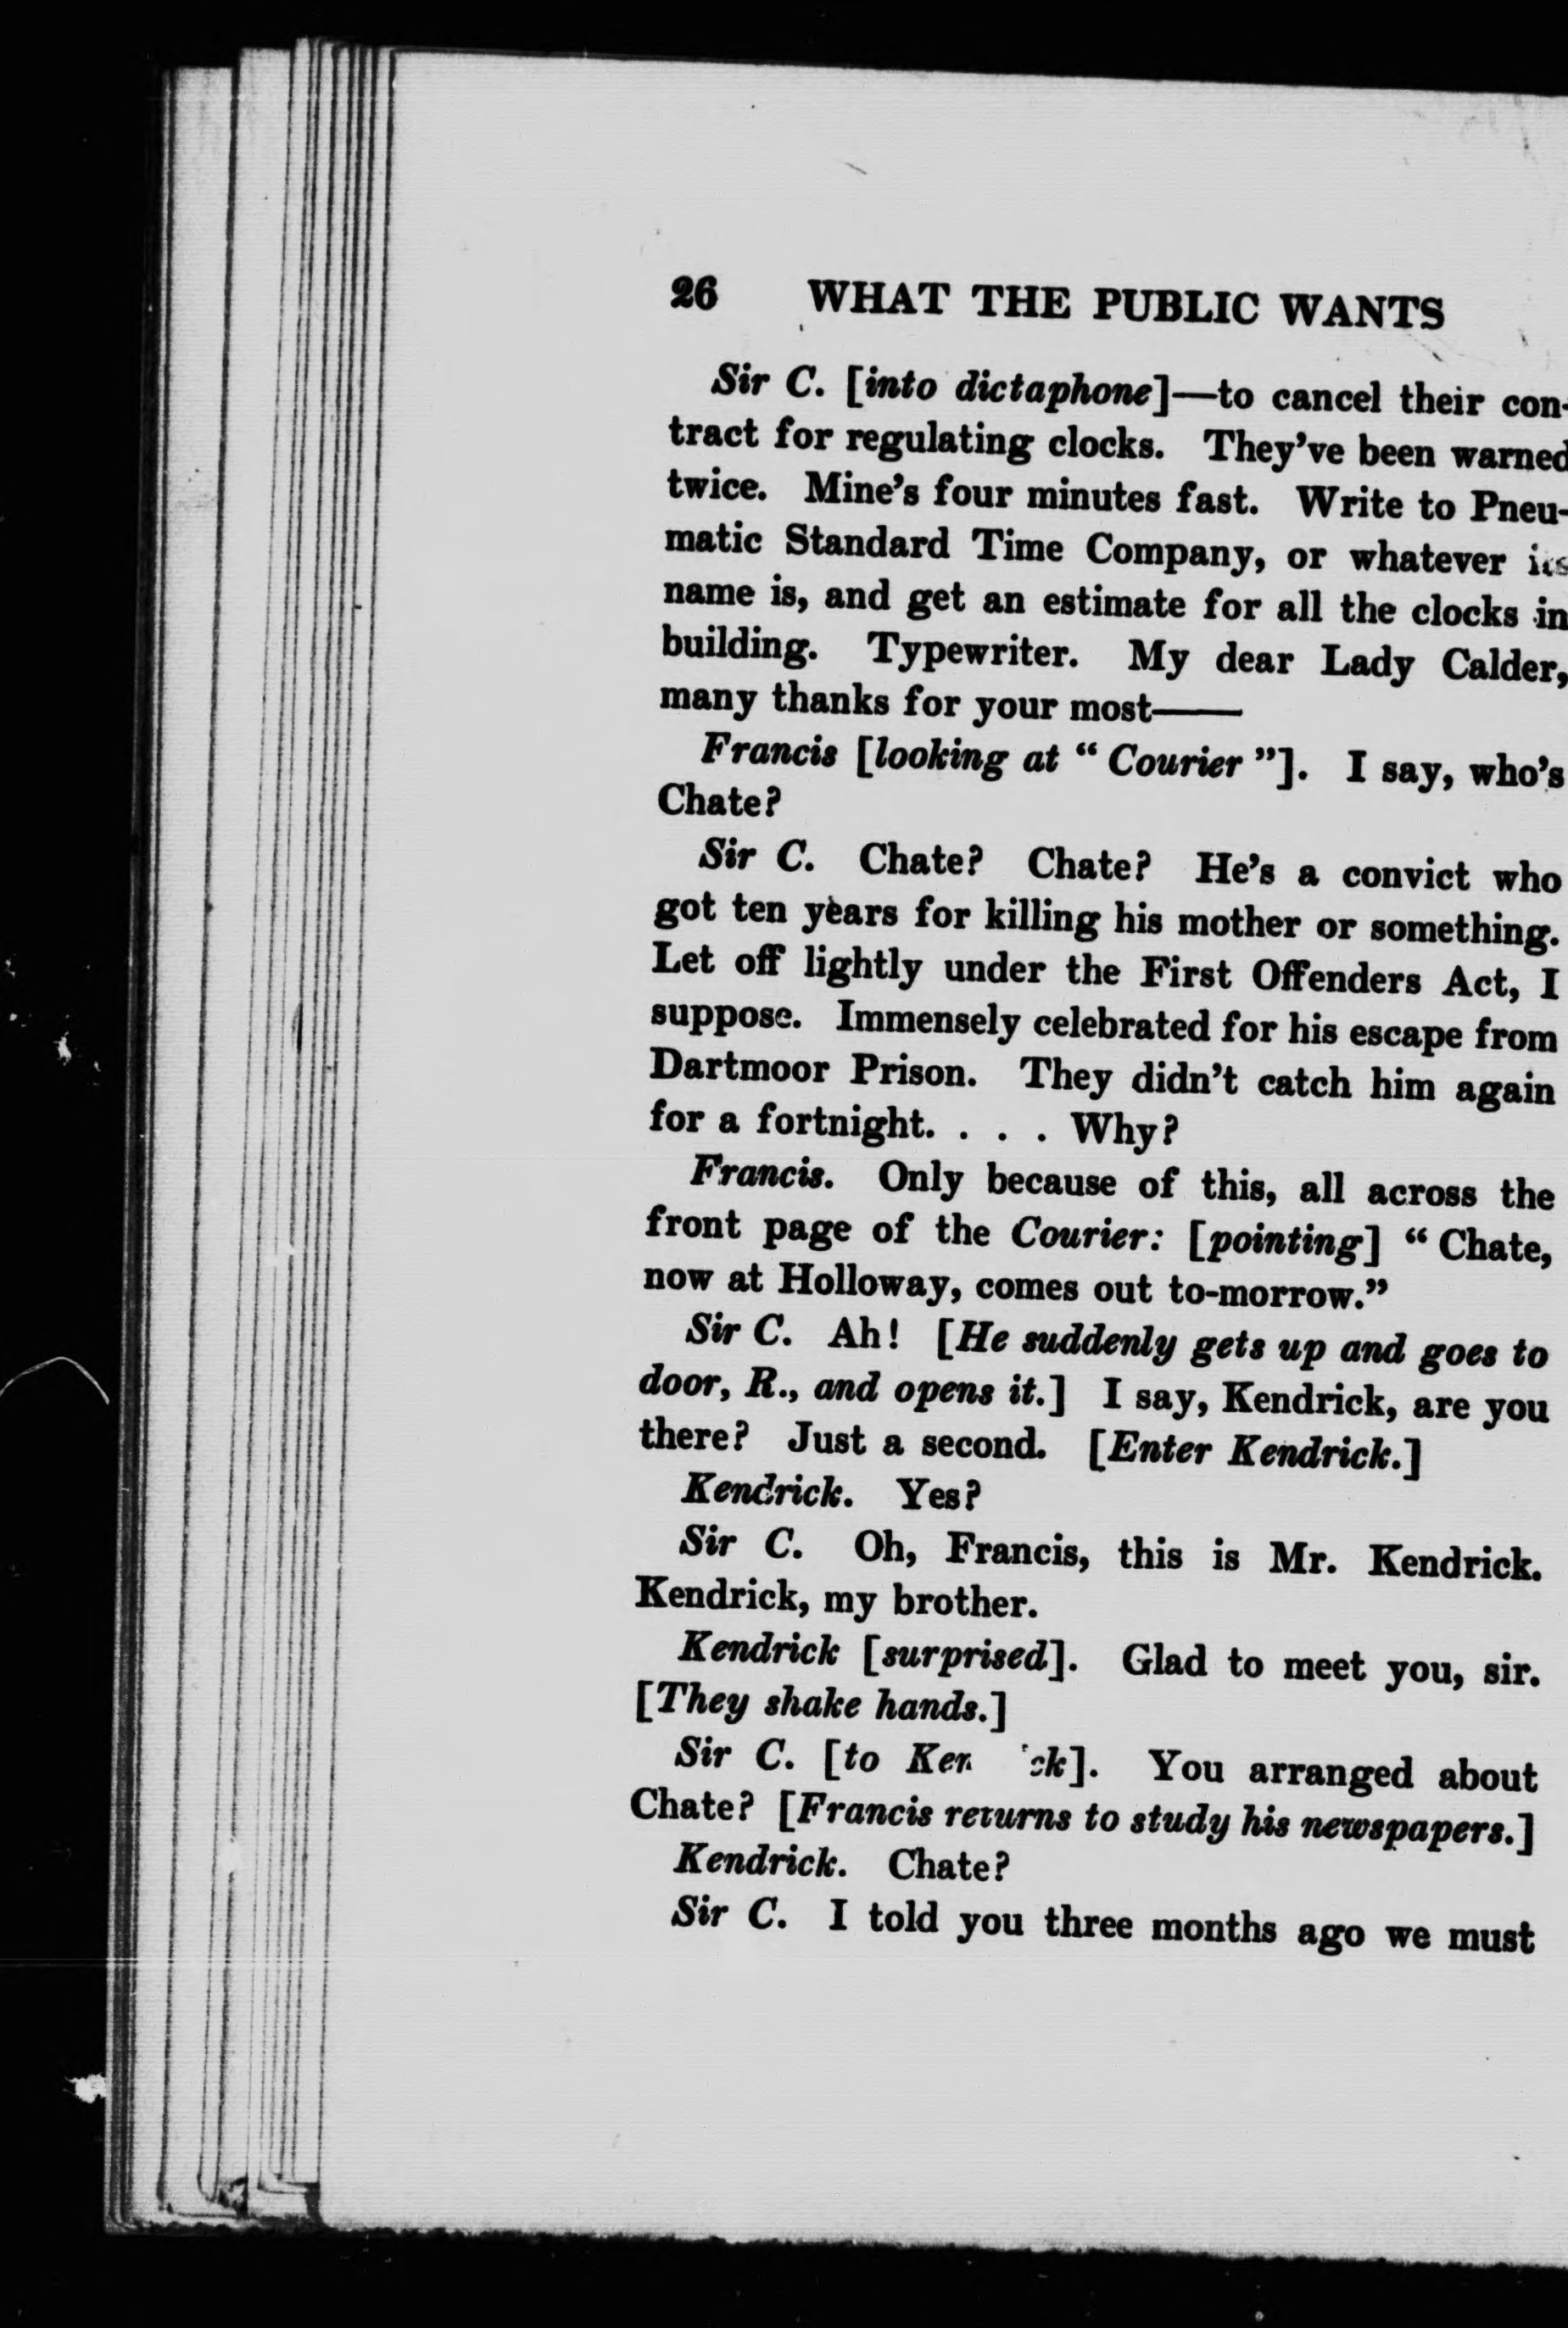 26 WHAT THE PUBLIC WANTS
Sir C. [into dictaphone]—to cancel their con-
tract for regulating clocks. They've been warned
twice. Mine's four minutes fast. Write to Pneu-
matic Standard Time Company, or whatever its
name is, and get an estimate for all the clocks in
building. Typewriter. My dear Lady Calder,
many thanks for your most——
Francis [looking at “ Courier ”]. I say, who's
Chate?
Sir C. Chate? Chate? He's a convict who
got ten years for killing his mother or something.
Let off lightly under the First Offenders Act, I
suppose. Immensely celebrated for his escape from
Dartmoor Prison. They didn't catch him again
for a fortnight. . . . Why?
Francis. Only because of this, all across the
front page of the Courier: [pointing] “ Chate,
now at Holloway, comes out to-morrow.”
Sir C. Ah! [He suddenly gets up and goes to
door, R., and opens it.] I say, Kendrick, are you
there? Just a second. [Enter Kendrick.]
Kendrick. Yes?
Sir C. Oh, Francis, this is Mr. Kendrick.
Kendrick, my brother.
Kendrick [surprised]. Glad to meet you, sir.
[They shake hands.]
Sir C. [to Ken ck]. You arranged about
Chate? [Francis returns to study his newspapers.]
Kendrick. Chate?
Sir C. I told you three months ago we must